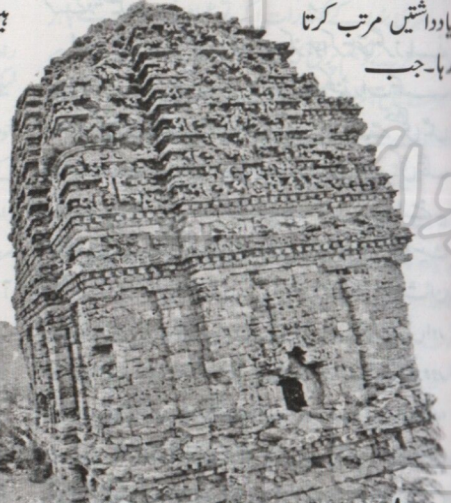 یادداشتیں مرتب کرتا
رہا۔جب